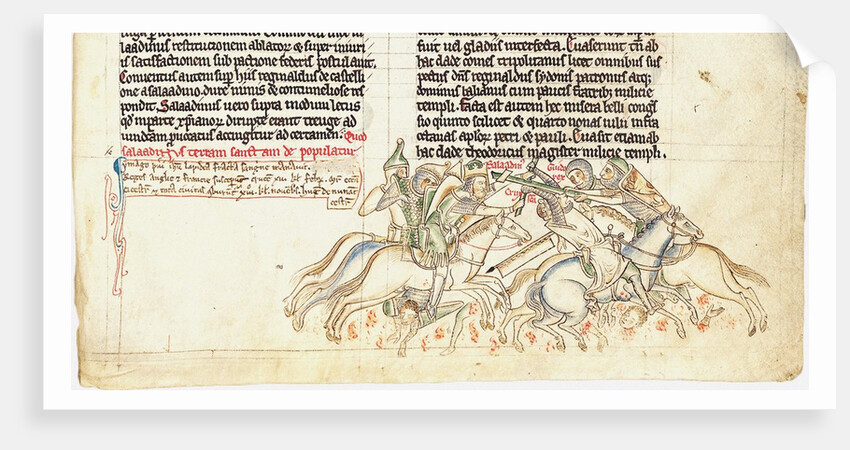 laadinus restitucionem ablatoꝝ & super iniuri
is satisfactionem sub pactione federis postulauit.
Conuentus autem sup hijs reginaldus de castelli
one a salaadino. dure nimis & contumeliose res
pondit. Salaadinus uero supra modum letus
qd inparte xp̃ianoꝝ dirupte erant treuge ad
accingitur ad certamen. Quod
salaadinus terram sanctam depopulatur
ymago lapidea fracta sangine manauit.
Reges anglie & francie
fuit uel gladiis interfecta. Euaserunt tñ ab
hac clade comes tripolitanus licet omnibus sus
pectus dñs reginaldus sydonis patronus atq;
dominus balianus cum paucis fratribꝫ milicie
templi. Facta est autem hec misera belli congres
sio quinto scilicet & quarto nonas iulii infra
octauas aploꝝ petri & pauli. Euasit etiam ab
hac clade theodoricus magister milicie templi.
Saladinus
Guido
rex
Crux
sca